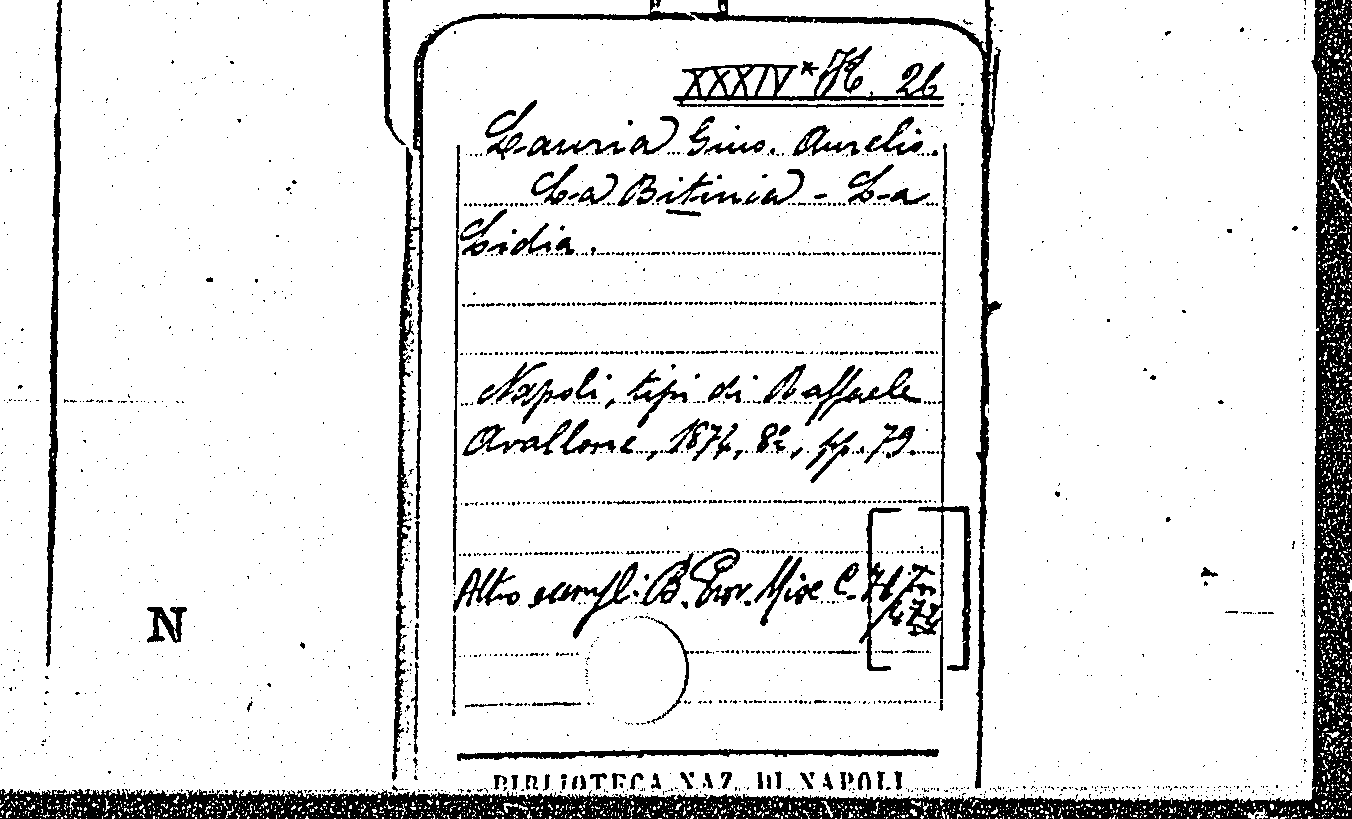 XXXIV* H. 26
Lauria Gius. Aurelio.
La Bitinia - La
Lidia.
Napoli, tipi di Raffaele
Avallone, 1874, 8°, pp. 79.
Altro esempl: B. Prov. Misc C.
N
BIBLIOTECA NAZ. DI NAPOLI